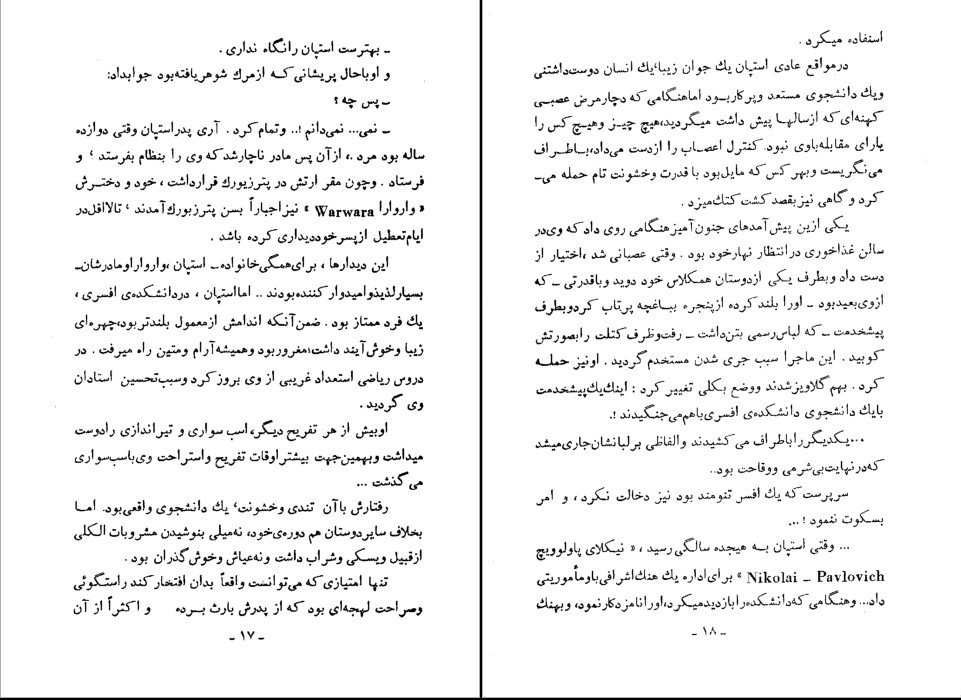 ـ بهترست استپان رانگاه نداری .
و اوباحال پریشانی که ازمرك شوهریافته‌بود جوابداد:
ـ پس چه ؟
ـ نمی... نمی‌دانم !.. وتمام کرد . آری پدراستپان وقتی دوازده
ساله بود مرد .، ازآن پس مادر ناچارشد که وی را بنظام بفرستد ؛ و
فرستاد . وچون مقر ارتش در پترزیورك قرارداشت ، خود و دخترش
« واروارا Warwara » نیز اجباراً بسن پترزبورك آمدند ؛ تالااقل‌در
ایام‌تعطیل ازپسرخوددیداری کرده باشد .
این دیدارها ، برای‌همگی‌خانواده‌ـ استپان ،واروارا،ومادرشان‌ـ
بسیارلذیذوامیدوارکننده‌بودند .. امااستپان ، دردانشکده‌ی افسری ،
یك فرد ممتاز بود . ضمن‌آنکه اندامش ازمعمول بلندتربود،چهره‌ای
زیبا وخوش‌آیند داشت؛مغروربود وهمیشه‌آرام ومتین راه میرفت . در
دروس ریاضی استعداد غریبی از وی بروز کرد وسبب‌تحسین استادان
وی گردید .
اوبیش از هر تفریح دیگر،اسب سواری و تیراندازی رادوست
میداشت وبهمین‌جهت بیشتراوقات تفریح واستراحت وی‌باسب‌سواری
می‌گذشت ...
رفتارش باآن تندی وخشونت؛ یك دانشجوی واقعی‌بود. امـا
بخلاف سایردوستان هم دوره‌ی‌خود، نه‌میلی بنوشیدن مشروبات الکلی
ازقبیل ویسکی وشراب داشت ونه‌عیاش وخوش‌گذران بود .
تنها امتیازی که می‌توانست واقعاً بدان افتخار کند راستگوئی
وصراحت لهجه‌ای بود که از پدرش بارث بـرده و اکثراً از آن
ـ ۱۷ ـ
استفاده میکرد .
درمواقع عادی استپان یك جوان زیبا؛یك انسان دوست‌داشتنی
ویك دانشجوی مستعد وپرکاربـود اماهنگامی که دچارمرض عصبـی
کهنه‌ای که ازسالها پیش داشت میگردید،هیچ چیـز وهیـچ‌کس را
یارای مقابله‌باوی نبود. کنترل اعصـاب را ازدست می‌داد،بـاطـراف
می‌نگریست وبهر کس که مایل‌بود با قدرت وخشونت تام حمله می‌ـ
کرد و گاهی نیز بقصد کشت کتك‌میزد .
یکی ازین پیش‌آمدهای جنون‌آمیز هنگامی روی داد که وی‌در
سالن غذاخوری درانتظار نهارخود بود . وقتی عصبانی شد ،اختیار از
دست داد وبطرف یکی ازدوستان همکلاس خود دوید وباقدرتی ـ که
ازوی‌بعیدبود ـ اورا بلند کرده ازپنجره بباغچه پرتاب کردوبطرف
پیشخدمت ـ که لباس‌رسمی بتن‌داشت ـ رفت‌وظرف کتلت رابصورتش
کوبید . این ماجرا سبب جری شدن مستخدم گردید . اونیز حملـه
کرد . بهم گلاویزشدند ووضع بکلی تغییر کرد : اینك‌یك‌پیشخدمت
بایك دانشجوی دانشکده‌ی افسری‌باهم‌می‌جنگیدند !.
...یکدیگرراباطراف می‌کشیدند والفاظی برلبانشان‌جاری‌میشد
که‌درنهایت‌بی‌شرمی ووقاحت بود..
سرپرست که یك افسر تنومند بود نیز دخالت نکرد ، و امر
بسکوت ننمود !...
... وقتی استپان بـه هیجده سالگی رسید ، « نیکلای پاولوویچ
Nikolai _ Pavlovich » برای‌اداره یك هنك‌اشرافی‌باومأموریتی
داد... وهنگامی که‌دانشکده‌رابازدیدمیکرد،اورانامزدکارنمود، وبهنك
ـ ۱۸ ـ